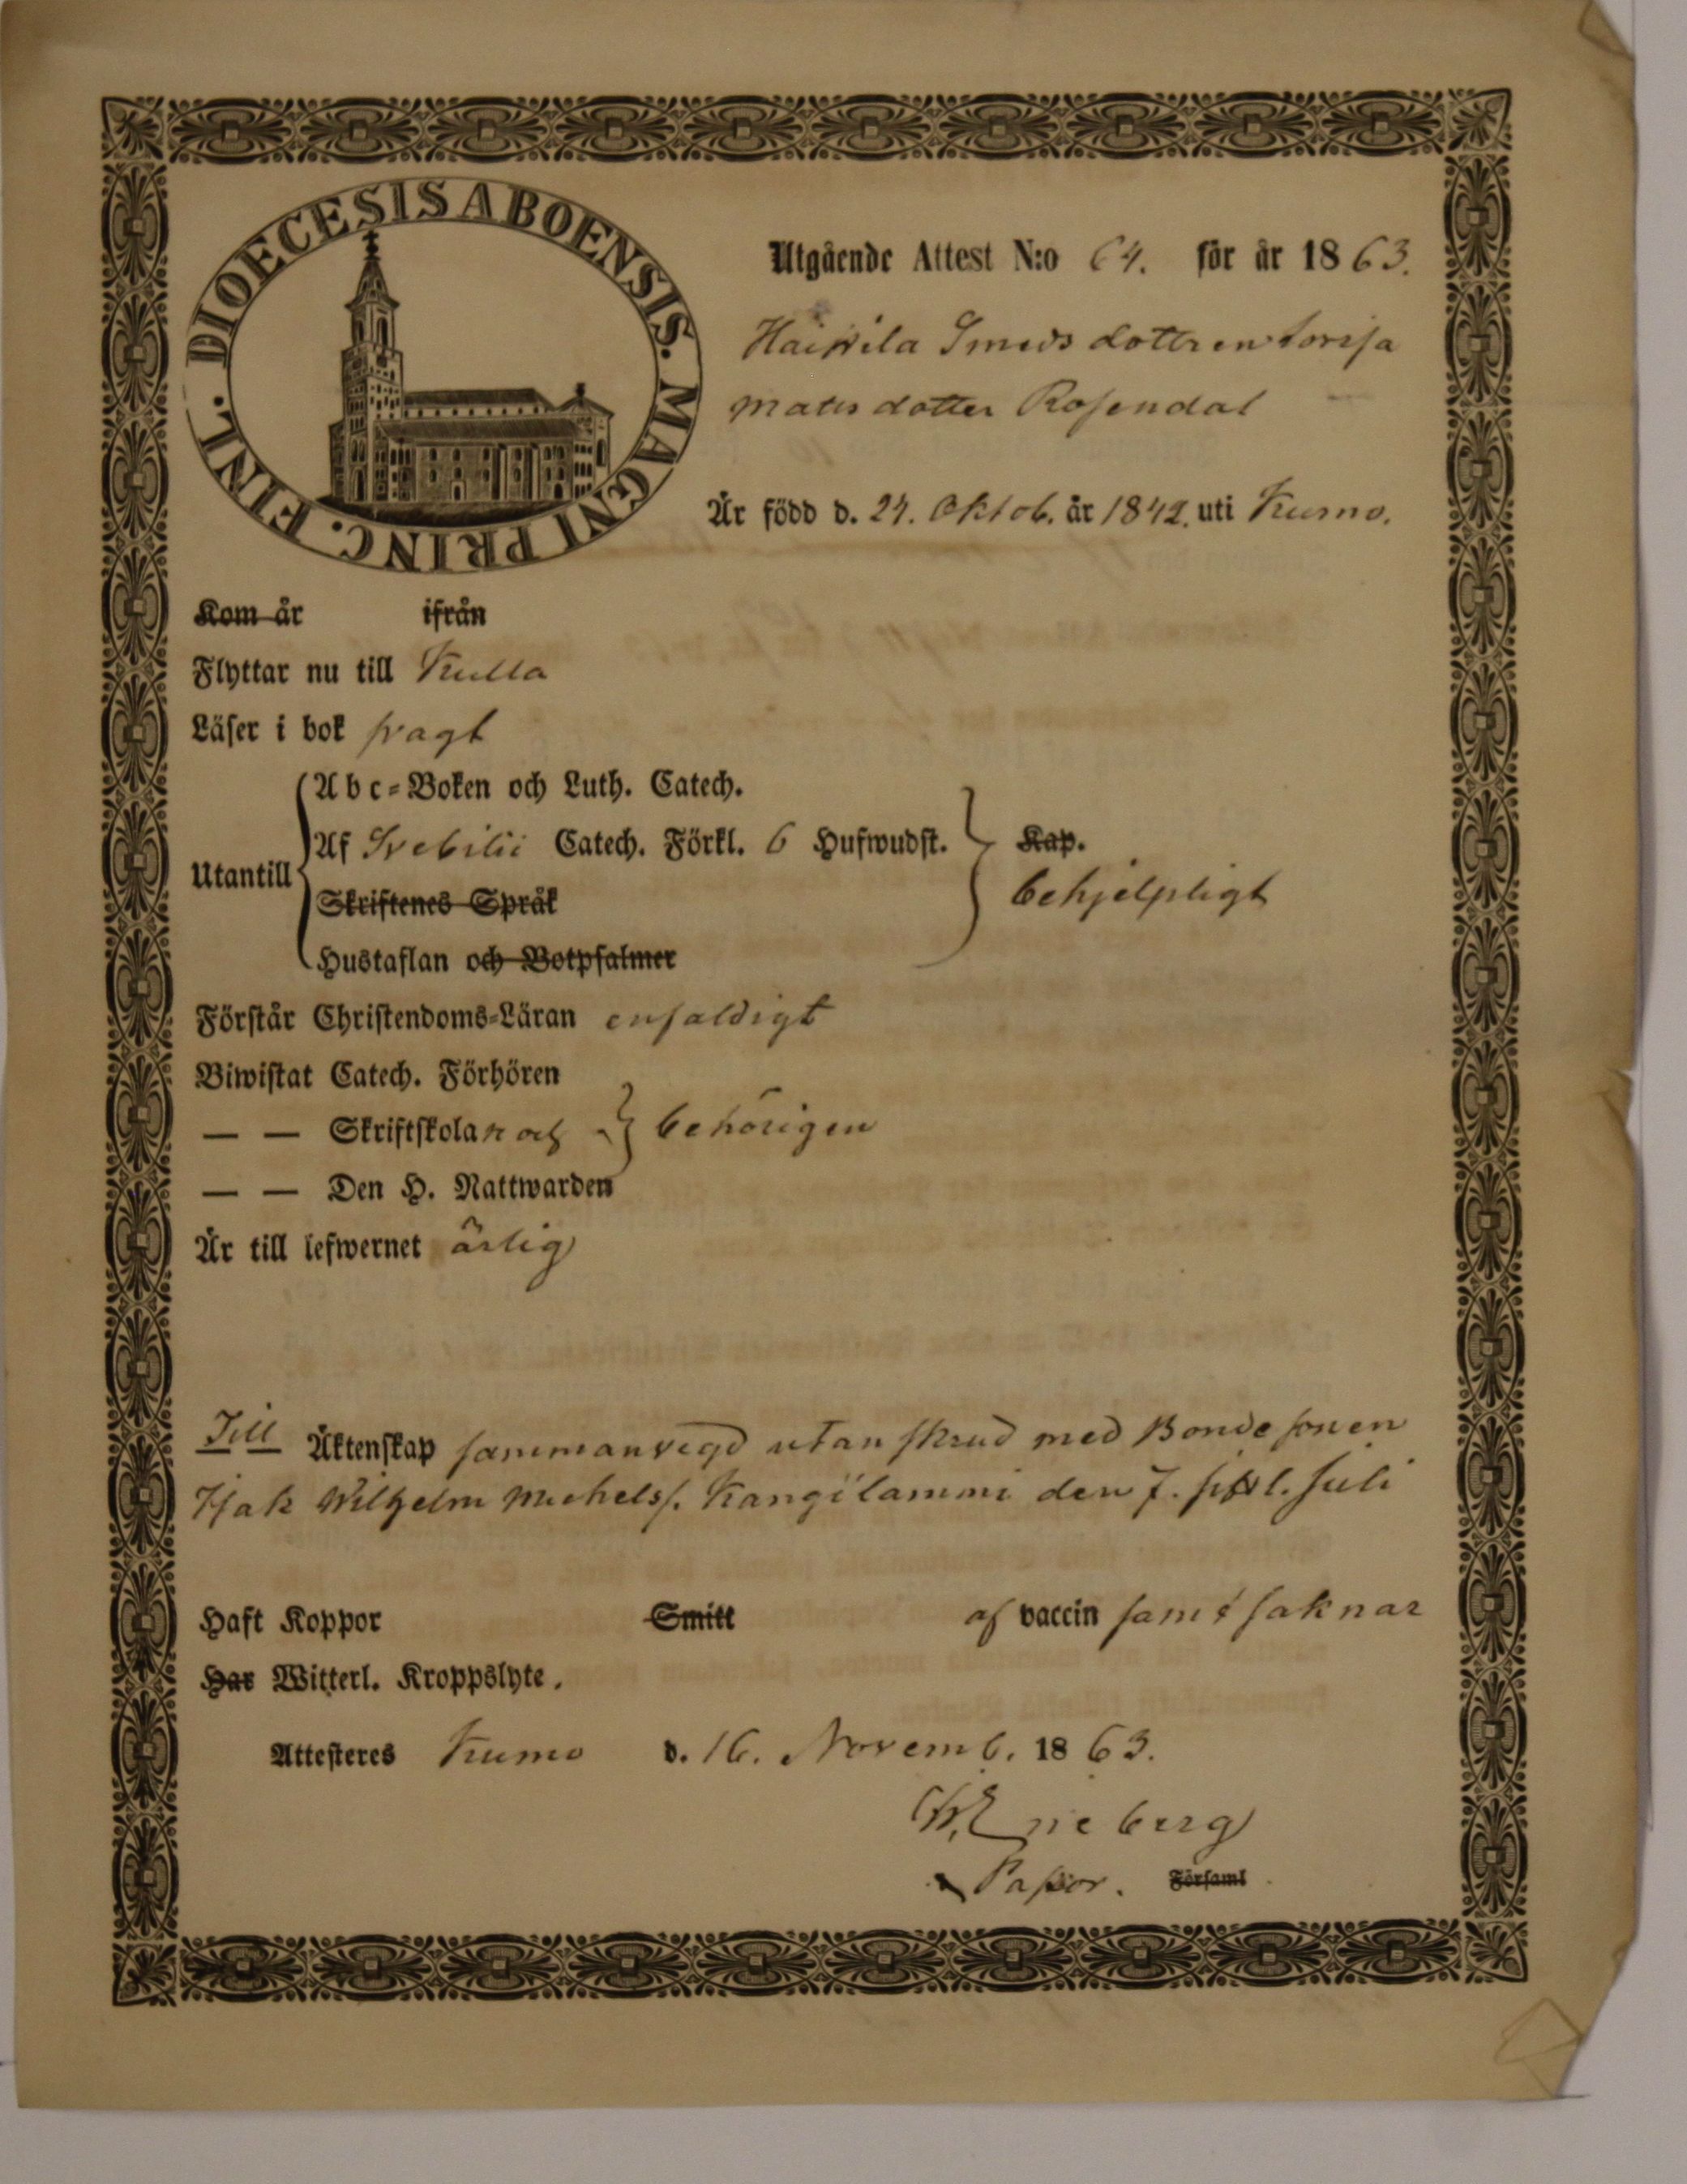 DIOECESIS ABOENSIS. MAGNI PRINC. FINL.
Utgående Attest N:o 64. för år 1863.
Haivila Smeds dottren Lovisa
Matts dotter Rosendal
Är född d. 24. Oktob. år 1842. uti Kumo.
Kom år ifrån
Flyttar nu till Kulla
Läser i bok svagt
Abc-Boken och Luth. Catech.
Af Svebilii Catech. Förkl. 6 Hufwudst. Kap.
Utantill
behjelpligt
Skriftenes Språk
Hustaflan och Botpsalmer
Förstår Christendoms-Läran enfaldigt
Biwistat Catech. Förhören
— — Skriftskolan och behörigen
— — Den H. Nattwarden
Är till lefwernet ärlig
Till Äktenskap sammanvigd utan skrud med Bondesonen
Isak Wilhelm Michelss. Kangilammi den 7. sistl. Juli
Haft Koppor Smitt af vaccin samt saknar
Har Witterl. Kroppslyte.
Attesteres Kumo d. 16. Novemb. 1863.
Eneberg
Pastor. Församl